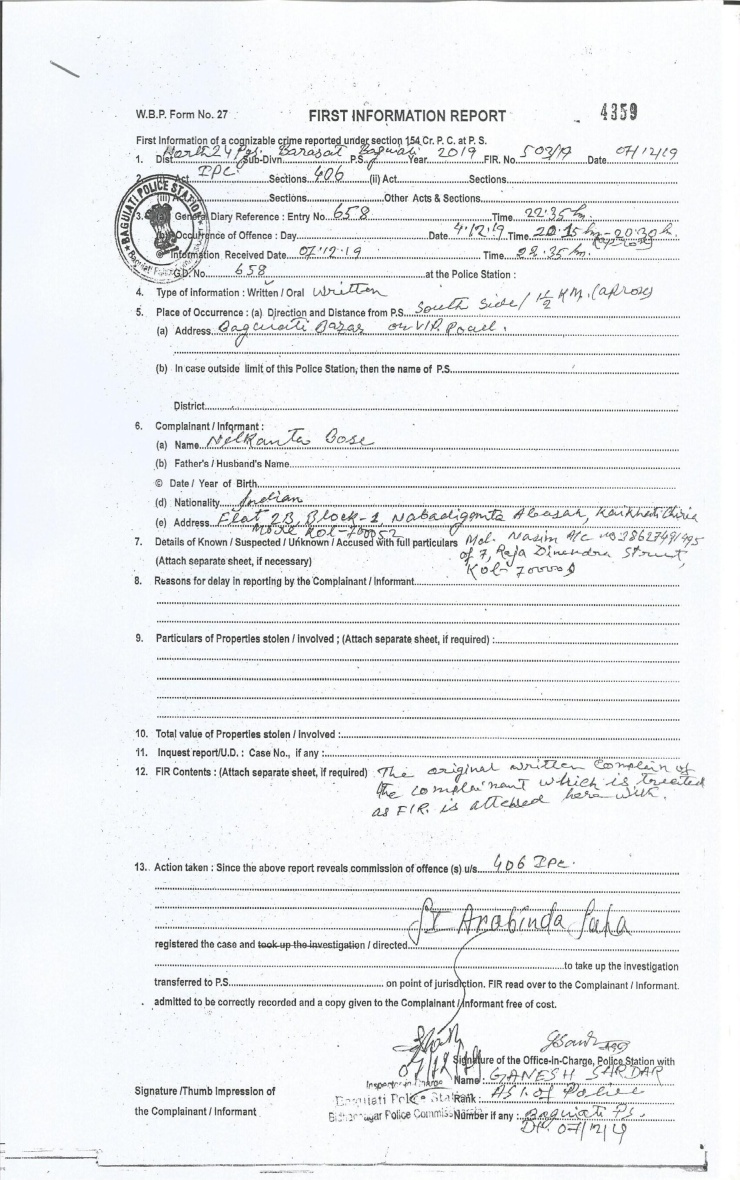 W.B.P. Form No. 27 FIRST INFORMATION REPORT 4359
First Information of a cognizable crime reported under section 154 Cr. P. C. at P. S.
1. Dist. North 24 Pgs. Sub-Divn. Barasat P.S. Baguiati Year 2019 FIR. No. 503/19 Date 07/12/19
2. Act IPC Sections 406 (ii) Act Sections.
(iii) Act Sections Other Acts & Sections
BAGUIATI POLICE STATION
3. (a) General Diary Reference : Entry No. 658 Time 22:35 hr.
(b) Occurrence of Offence : Day Date 4.12.19 Time 20.15 hr - 20:30 h.
© Information Received Date 07.12.19 Time 22.35 hr.
G.D. No. 658 at the Police Station :
4. Type of information : Written / Oral Written
5. Place of Occurrence : (a) Direction and Distance from P.S. South Side / 1½ KM. (aprox)
(a) Address Baguiati Bazar on VIP Road.
(b) In case outside limit of this Police Station, then the name of P.S.
District
6. Complainant / Informant :
(a) Name Nilkanta Bose
(b) Father's / Husband's Name
© Date / Year of Birth
(d) Nationality Indian
(e) Address Flat 2B, Block-1 Nabadiganta Abasan,
Kol-700052
7. Details of Known / Suspected / Unknown / Accused with full particulars Md. Nasim A/c no 38627491495
(Attach separate sheet, if necessary) of 7, Raja Dinendra Street,
Kol-700009
8. Reasons for delay in reporting by the Complainant / Informant
9. Particulars of Properties stolen / Involved ; (Attach separate sheet, if required) :
10. Total value of Properties stolen / Involved :
11. Inquest report/U.D. : Case No., if any :
12. FIR Contents : (Attach separate sheet, if required) The original written complain of
the complainant which is treated
as FIR. is attached here with.
13. Action taken : Since the above report reveals commission of offence (s) u/s 406 IPC.
SI Arabinda Saha
registered the case and took up the investigation / directed
to take up the investigation
transferred to P.S. on point of jurisdiction. FIR read over to the Complainant / Informant.
admitted to be correctly recorded and a copy given to the Complainant / Informant free of cost.
Signature of the Office-in-Charge, Police Station with
Inspector in Charge Name : GANESH SARDAR
Signature /Thumb Impression of Baguiati Police Station Rank : ASI. of Police
the Complainant / Informant Bidhannagar Police Commiss Number if any : Baguiati PS.
Dt. 07/12/19